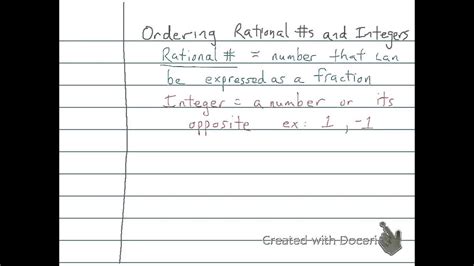 Ordering Rational #s and Integers
Rational # = number that can
be expressed as a fraction
Integer = a number or its
opposite ex: 1, -1
Created with Doceri